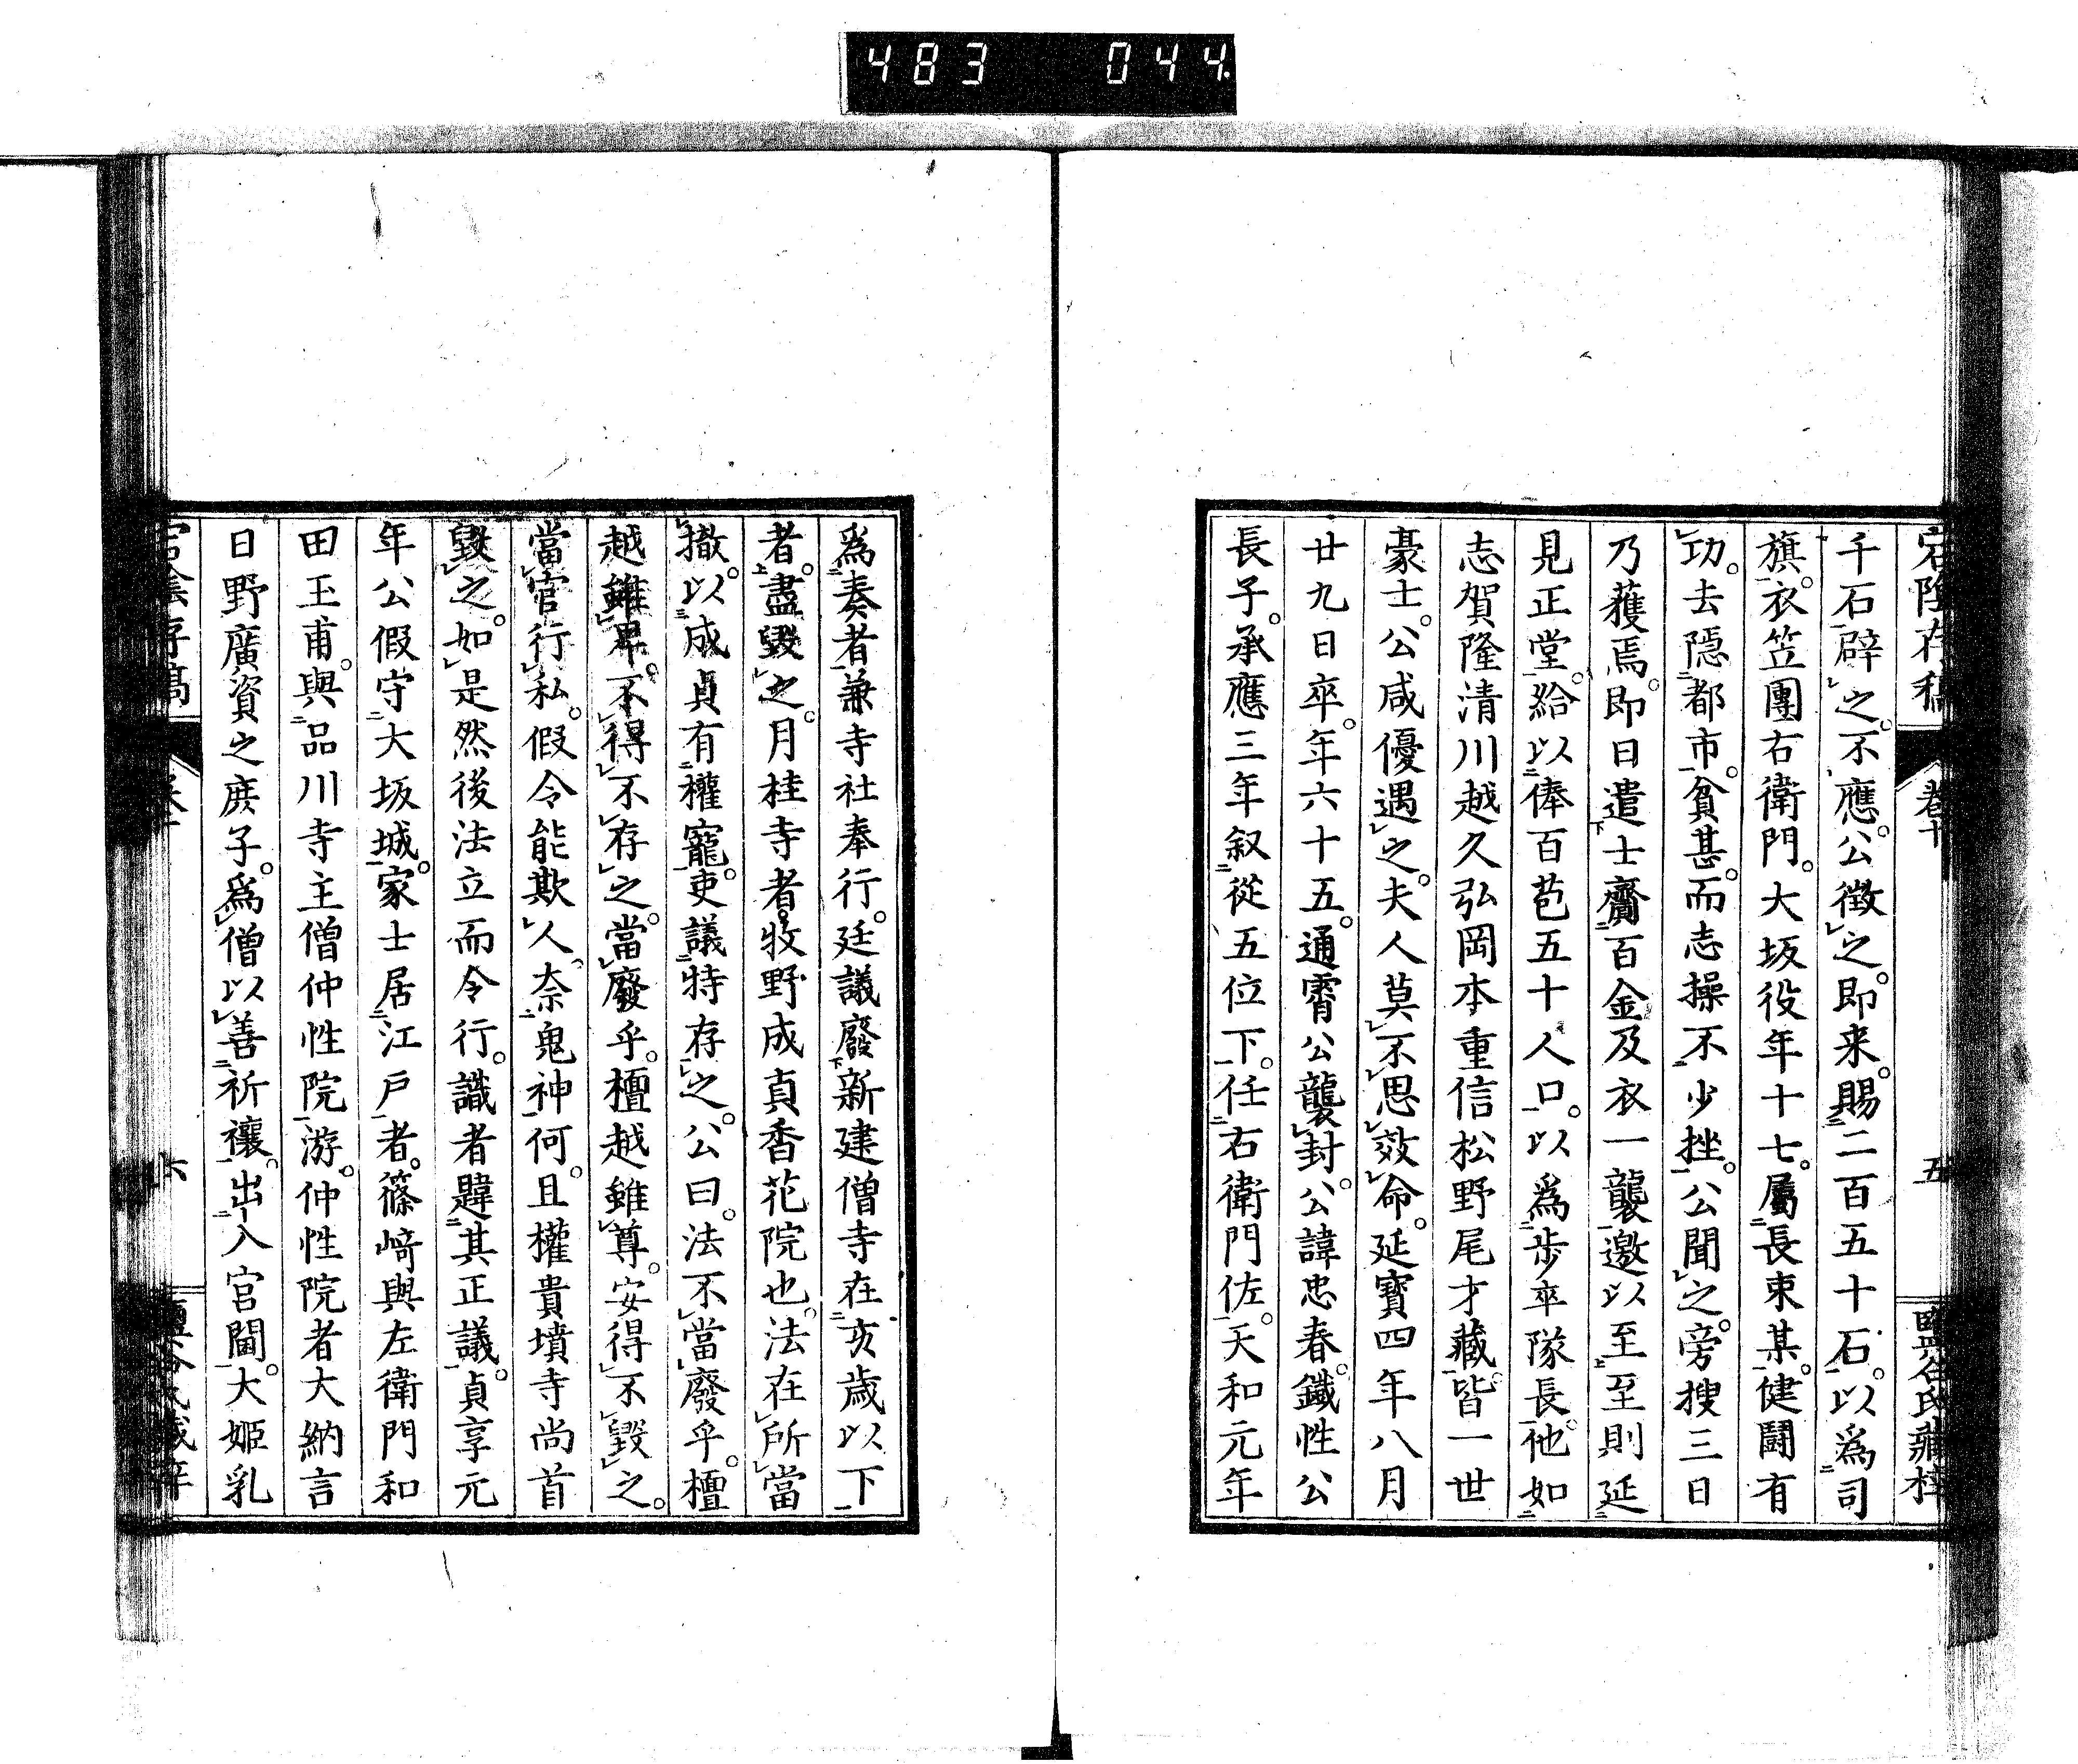 483 044
宕陰存稿 卷十 五 鹽谷氏藏梓
千石辟之。不應。公徵之。即来。賜二百五十石。以爲司
旗。衣笠團右衛門。大坂役年十七。屬長束某。健鬪有
功。去隱都市。貧甚。而志操不少挫。公聞之。旁搜三日
乃獲焉。即日遣士齎百金及衣一襲邀以至至則延
見正堂。給以俸百苞五十人口。以爲步卒隊長。他如
志賀隆清川越久弘岡本重信松野尾才藏。皆一世
豪士。公咸優遇之。夫人莫不思效命。延寶四年八月
廿九日卒。年六十五。通霄公襲封。公諱忠春。鐵性公
長子。承應三年叙從五位下。任右衛門佐。天和元年
爲奏者兼寺社奉行。廷議廢新建僧寺在亥歳以下
者。盡毀之。月桂寺者。牧野成貞香花院也。法在所當
撤。以成貞有權寵。吏議特存之。公曰。法不當廢乎。檀
越雖卑。不得不存之。當廢乎。檀越雖尊。安得不毀之。
當官行私。假令能欺人。奈鬼神何。且權貴墳寺尚首
毀之。如是然後法立而令行。識者韙其正議。貞享元
年公假守大坂城。家士居江戸者。篠﨑與左衛門和
田玉甫。與品川寺主僧仲性院游。仲性院者大納言
日野廣資之庶子。爲僧以善祈禳。出入宮閫。大姬乳
宕陰存稿 卷十 六 鹽谷氏藏梓